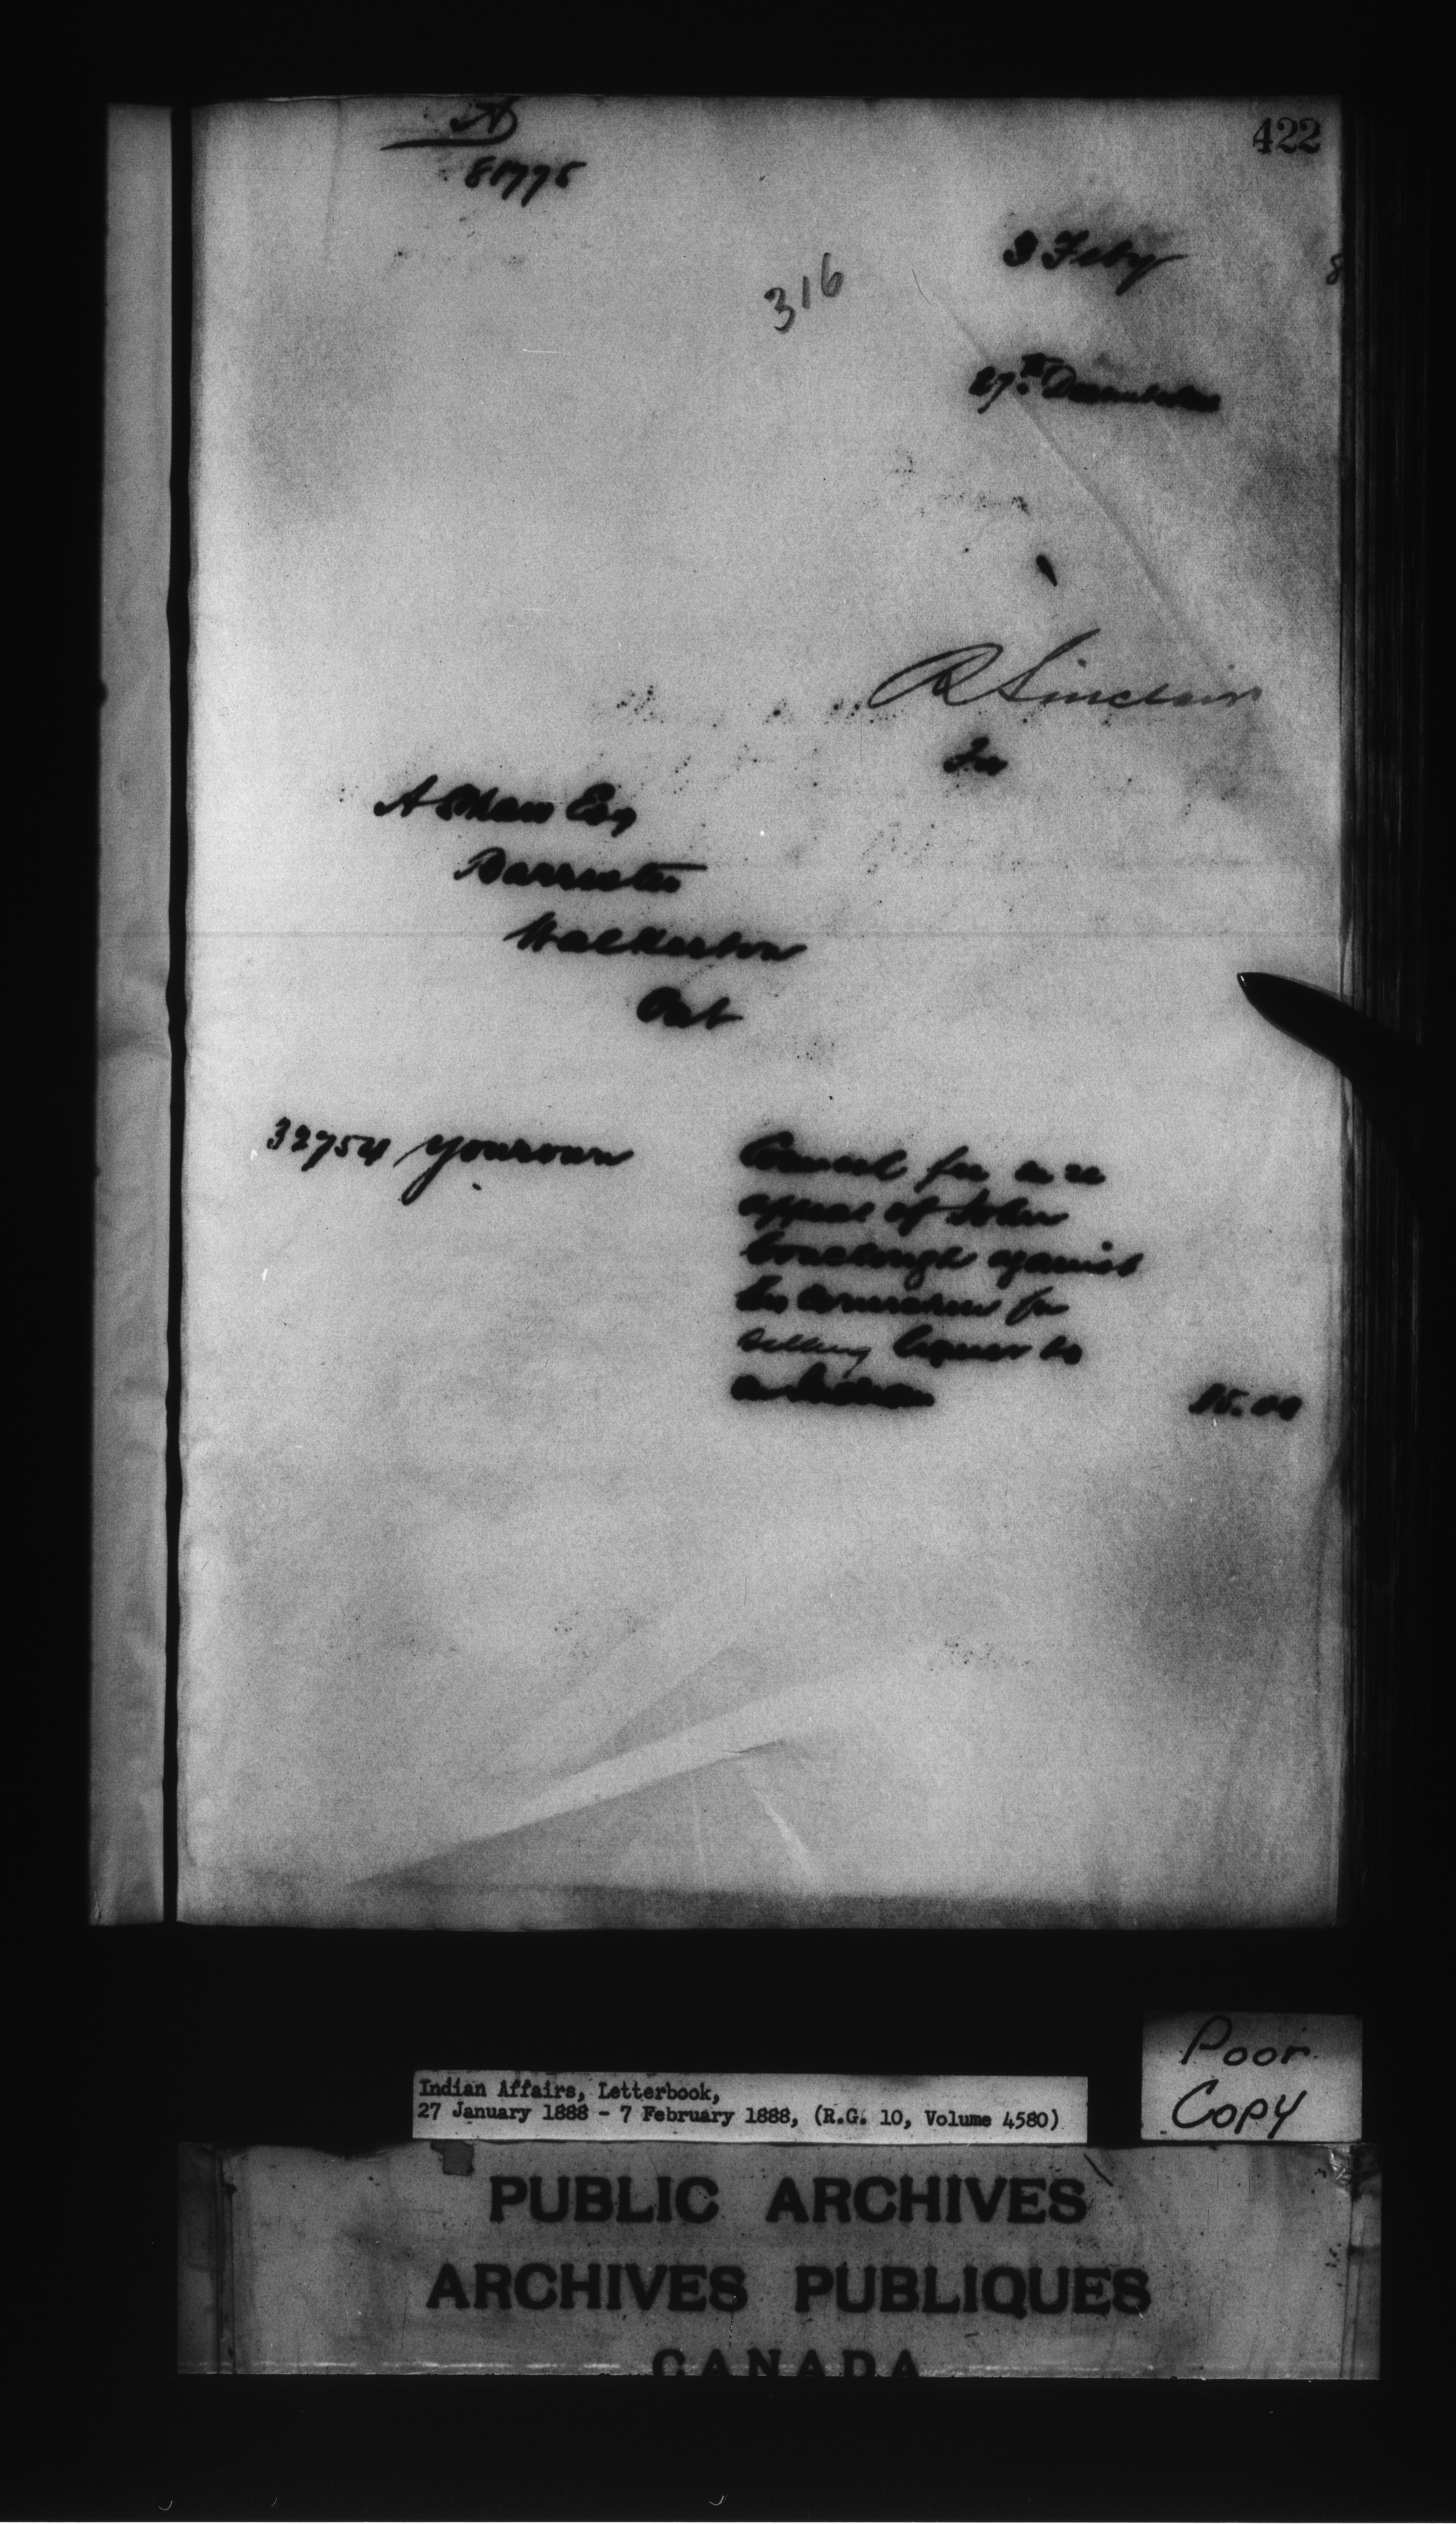 A
81775
422
3 Feby 8
316
27th December
R Sinclair
For
A Shaw Esq
Barrister
Walkerton
Ont
32754 yourown
Counsel fee in re
appeal of John
against
his conviction for
selling liquor to
an Indian 15.00
Poor
Copy
Indian Affairs, Letterbook,
27 January 1888 - 7 February 1888, (R.G. 10, Volume 4580)
PUBLIC ARCHIVES
ARCHIVES PUBLIQUES
CANADA